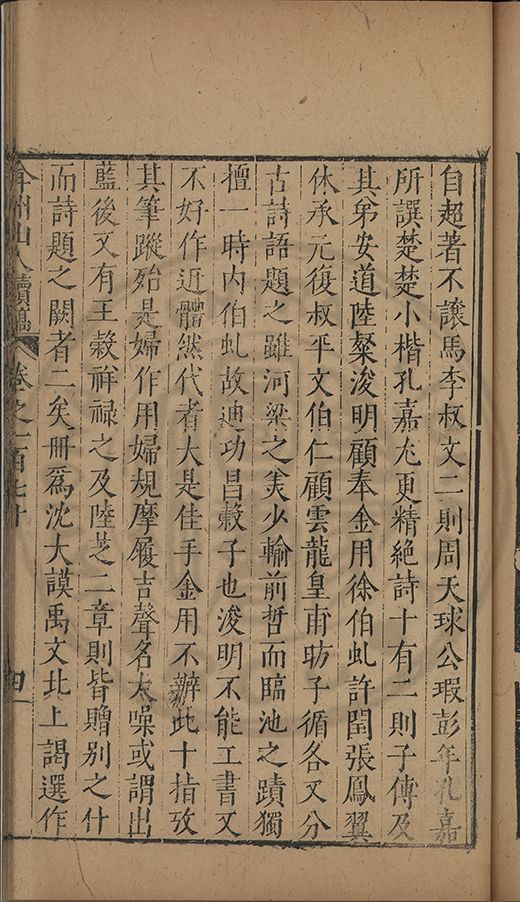 自超著不讓馬李叔文二則周天球公瑕彭年孔嘉
所譔楚楚小楷孔嘉尤更精絕詩十有二則子傳及
其弟安道陸粲浚明顧奉金用徐伯虬許閏張鳳翼
休承元復叔平文伯仁顧雲龍皇甫昉子循各又分
古詩語題之雖河梁之美少輸前哲而臨池之蹟獨
擅一時內伯虬故迪功昌穀子也浚明不能工書又
不好作近體然代者大是佳手金用不辦此十指攷
其筆蹤殆是婦作用婦規摩履吉聲名太噪或謂出
藍後又有王榖祥祿之及陸芝二章則皆贈別之什
而詩題之闕者二矣冊爲沈大謨禹文北上謁選作
弇州山人續稿 卷之一百七十 四